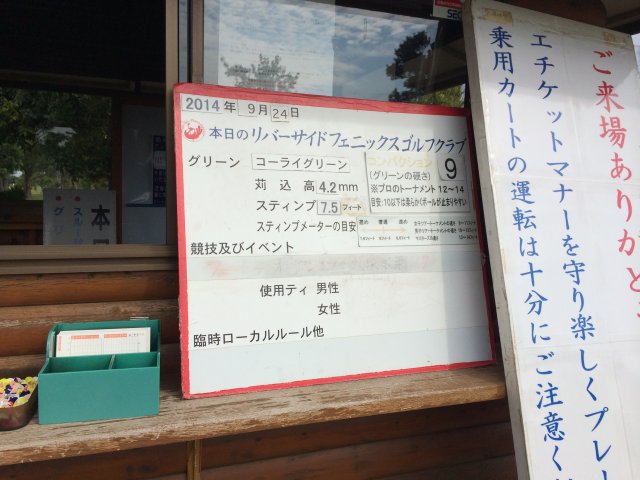 2014年 9月24日
本日のリバーサイドフェニックスゴルフクラブ
グリーン コーライグリーン
コンパクション
(グリーンの硬さ)
9
※プロのトーナメント 12〜14
目安:10以下は柔らかくボールが止まりやすい
苅込高 4.2mm
スティンプ 7.5 フィート
スティンプメーターの目安
遅め 普通 速め
競技及びイベント
使用ティ 男性
女性
臨時ローカルルール他
ご来場ありがと
エチケットマナーを守り楽しくプレー
乗用カートの運転は十分にご注意く
本日